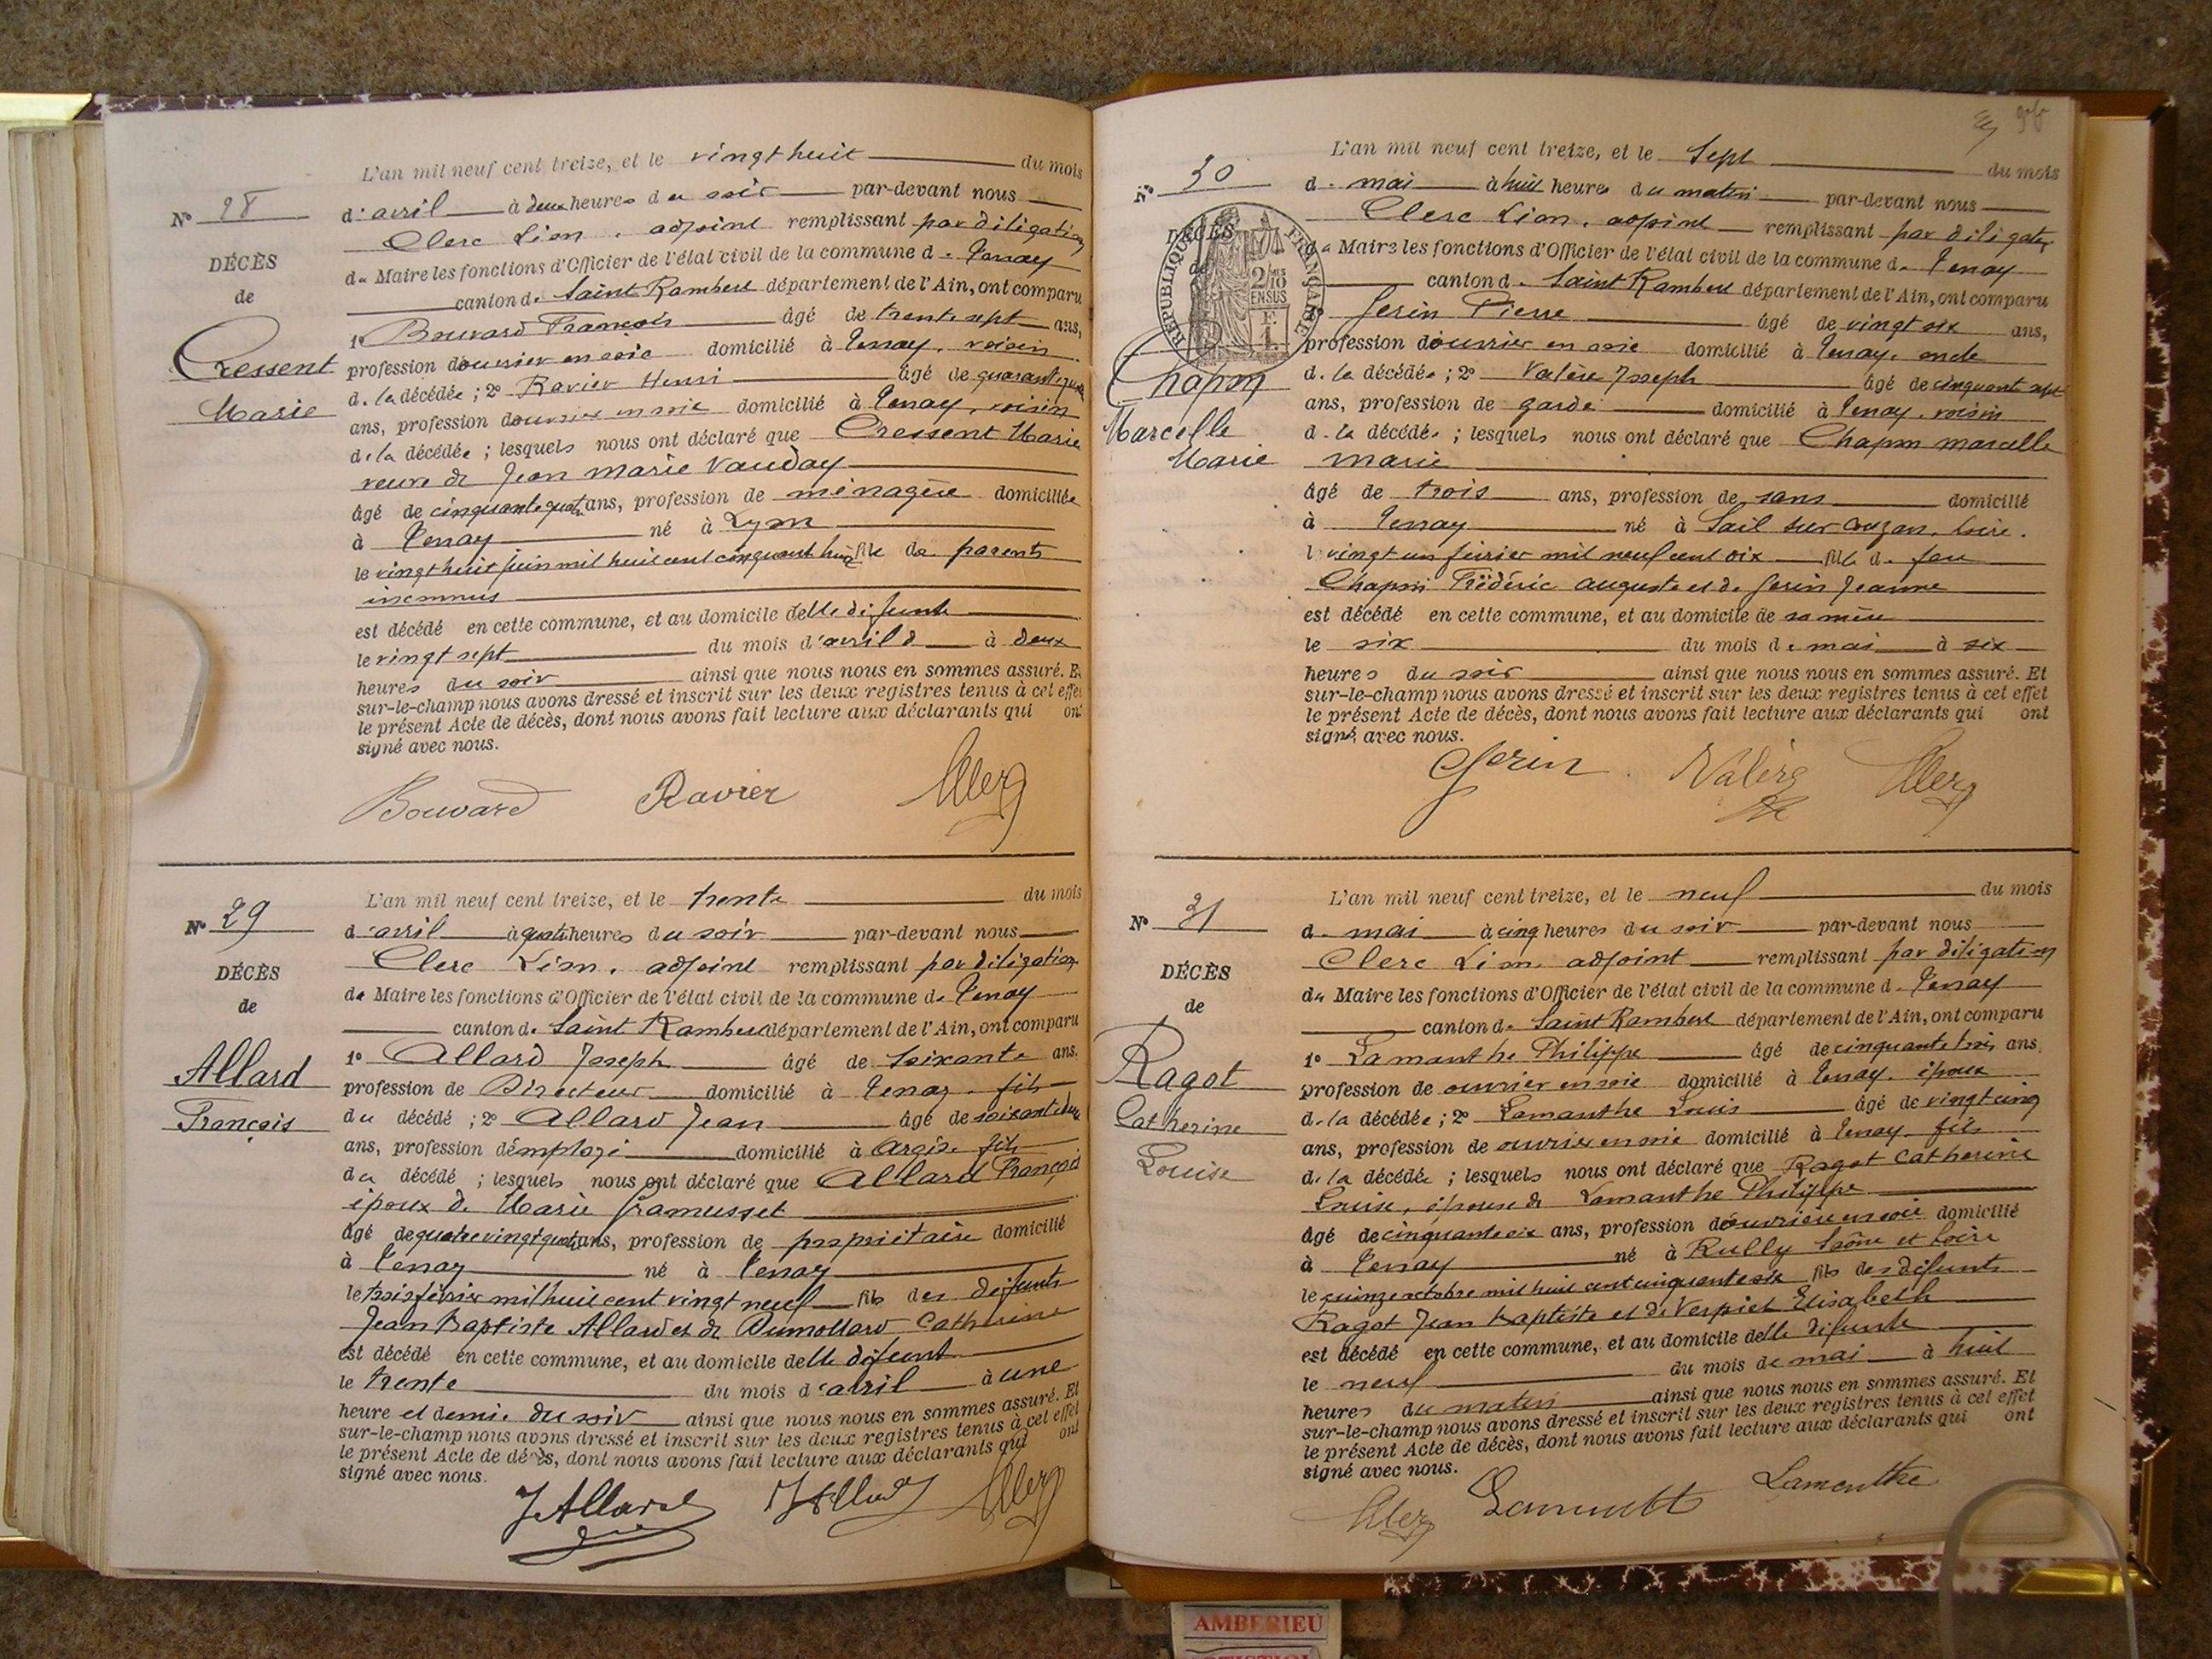 L'an mil neuf cent treize, et le vingt huit du mois
d'avril à deux heures du soir par-devant nous
Clerc Léon, adjoint remplissant par délégation
du Maire les fonctions d'Officier de l'état civil de la commune de Tenay
canton de Saint Rambert département de l'Ain, ont comparu
1º Bouvard François âgé de trente sept ans,
profession d'ouvrier en soie domicilié à Tenay, voisin
de la décédée ; 2º Ravier Henri âgé de
ans, profession d'ouvrier en soie domicilié à Tenay, voisin
de la décédée ; lesquels nous ont déclaré que Cressent Marie
veuve de Jean Marie Vauday
âgé de cinquante quatre ans, profession de ménagère domiciliée
à Tenay né à Lyon
le vingt huit juin mil huit cent cinquante huit fille de parents
inconnus
est décédé en cette commune, et au domicile de elle défunte
le vingt sept du mois d'avril à deux
heures du soir ainsi que nous nous en sommes assuré. Et
sur-le-champ nous avons dressé et inscrit sur les deux registres tenus à cet effet
le présent Acte de décès, dont nous avons fait lecture aux déclarants qui ont
signé avec nous.
Nº 28
DÉCÈS
de
Cressent
Marie
Bouvard Ravier Clerc
L'an mil neuf cent treize, et le trente du mois
d'avril à quatre heures du soir par-devant nous
Clerc Léon, adjoint remplissant par délégation
du Maire les fonctions d'Officier de l'état civil de la commune de Tenay
canton de Saint Rambert département de l'Ain, ont comparu
1º Allard Joseph âgé de soixante ans.
profession de Directeur domicilié à Tenay fils
du décédé ; 2º Allard Jean âgé de
ans, profession d'employé domicilié à Argis fils
du décédé ; lesquels nous ont déclaré que Allard François
époux de Marie Gramusset
âgé de quatre vingt quatre ans, profession de propriétaire domicilié
à Tenay né à Tenay
le trois février mil huit cent vingt neuf fils des défunts
Jean Baptiste Allard et de Dumollard Catherine
est décédé en cette commune, et au domicile de lle défunt
le trente du mois d'avril à une
heure et demie du soir ainsi que nous nous en sommes assuré. Et
sur-le-champ nous avons dressé et inscrit sur les deux registres tenus à cet effet
le présent Acte de décès, dont nous avons fait lecture aux déclarants qui ont
signé avec nous.
Nº 29
DÉCÈS
de
Allard
François
J Allard Clerc
L'an mil neuf cent treize, et le sept du mois
de mai à huit heures du matin par-devant nous
Clerc Léon, adjoint remplissant par délégation
du Maire les fonctions d'Officier de l'état civil de la commune de Tenay
canton de Saint Rambert département de l'Ain, ont comparu
Gerin Pierre âgé de vingt six ans,
profession d'ouvrier en soie domicilié à Tenay, oncle
de la décédée ; 2º Valère Joseph âgé de cinquante sept
ans, profession de garde domicilié à Tenay, voisin
de la décédée ; lesquels nous ont déclaré que Chapon Marcelle
Marie
âgé de trois ans, profession de sans domicilié
à Tenay né à Sail sur Couzan, Loire.
le vingt un février mil neuf cent dix fille de feu
Chapon Frédéric Auguste et de Gerin Jeanne
est décédé en cette commune, et au domicile de sa mère
le six du mois de mai à six
heures du soir ainsi que nous nous en sommes assuré. Et
sur-le-champ nous avons dressé et inscrit sur les deux registres tenus à cet effet
le présent Acte de décès, dont nous avons fait lecture aux déclarants qui ont
signé avec nous.
Nº 30
DÉCÈS
de
RÉPUBLIQUE FRANÇAISE
2/10
EN SUS
Chapon
Marcelle
Marie
Gerin Valère Clerc
L'an mil neuf cent treize, et le neuf du mois
de mai à cinq heures du soir par-devant nous
Clerc Léon adjoint remplissant par délégation
du Maire les fonctions d'Officier de l'état civil de la commune de Tenay
canton de Saint Rambert département de l'Ain, ont comparu
1º Lamanthe Philippe âgé de cinquante trois ans.
profession de ouvrier en soie domicilié à Tenay, époux
de la décédée ; 2º Lamanthe Louis âgé de vingt cinq
ans, profession de ouvrier en soie domicilié à Tenay fils
de la décédée ; lesquels nous ont déclaré que Ragot Catherine
Louise, épouse de Lamanthe Philippe
âgé de cinquante six ans, profession d'ouvrière en soie domicilié
à Tenay né à Rully Saône et Loire
le quinze octobre mil huit cent cinquante six fille des défunts
Ragot Jean baptiste et de Verpiet Elisabeth
est décédé en cette commune, et au domicile de elle défunte
le neuf du mois de mai à huit
heures du matin ainsi que nous nous en sommes assuré. Et
sur-le-champ nous avons dressé et inscrit sur les deux registres tenus à cet effet
le présent Acte de décès, dont nous avons fait lecture aux déclarants qui ont
signé avec nous.
Nº 31
DÉCÈS
de
Ragot
Catherine
Louise
Clerc Lamanthe
AMBERIEU